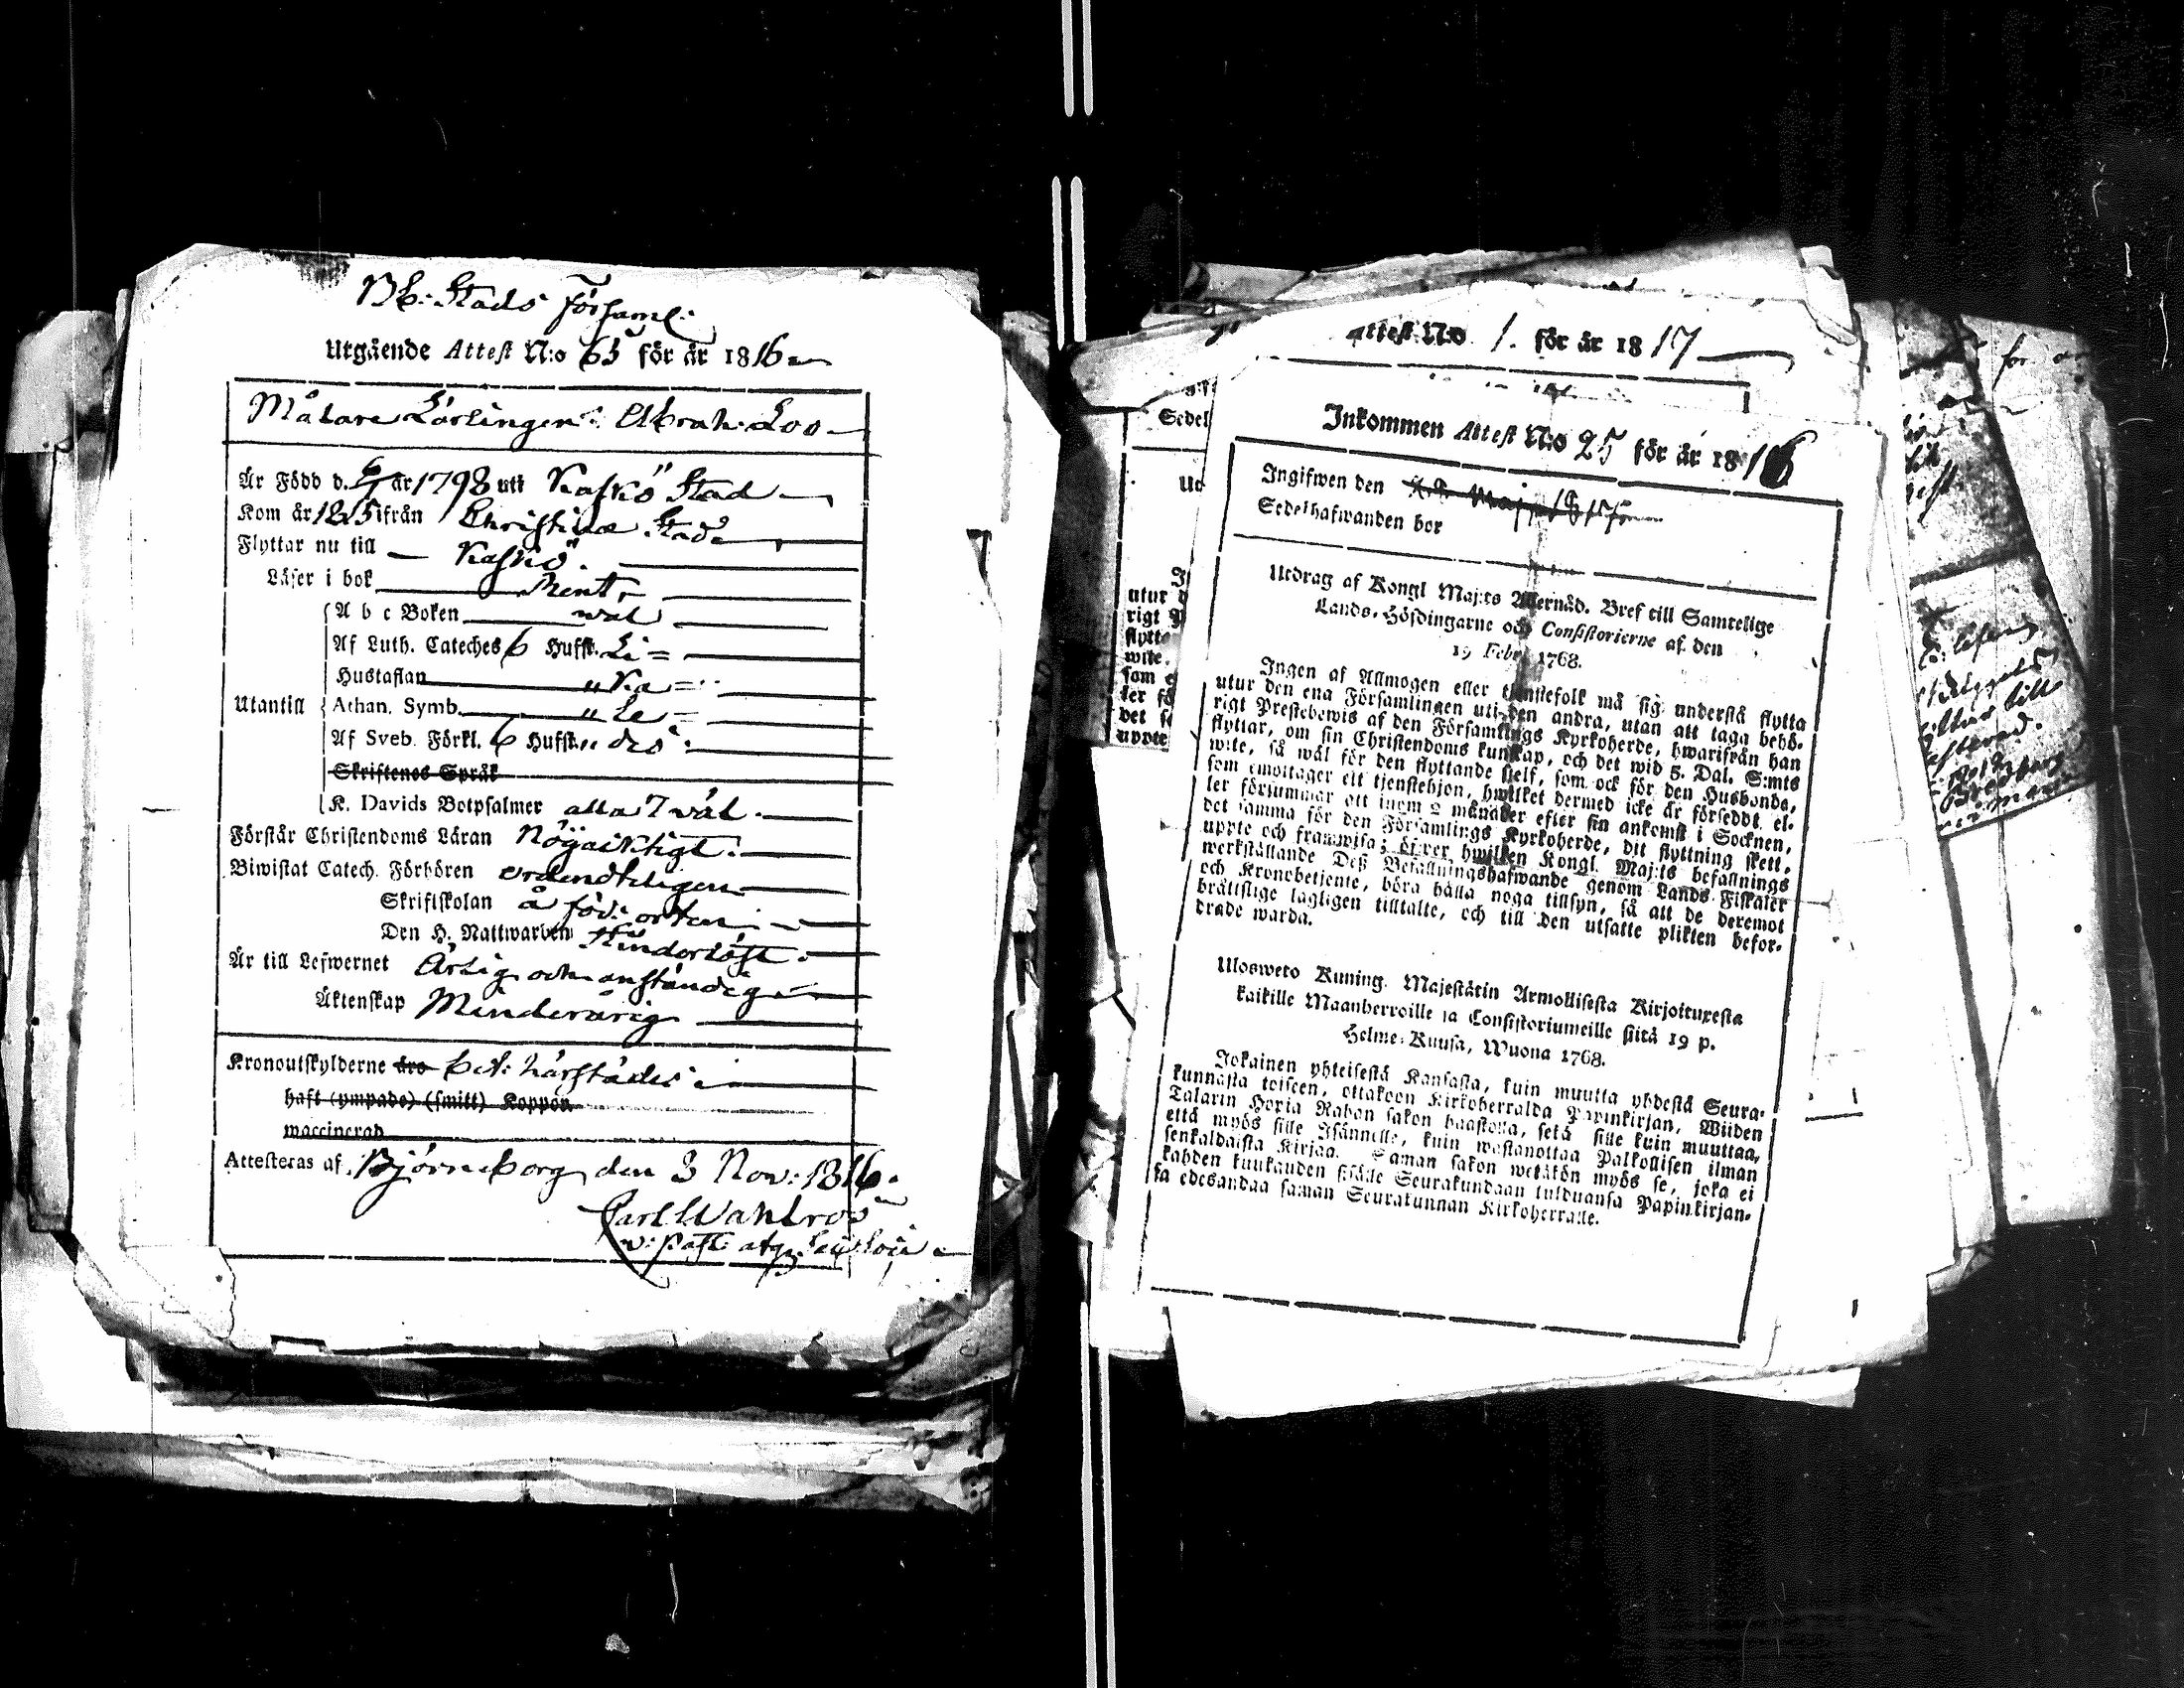 BB: Stads Församl:
Utgående Attest N:o 65 för år 1816
Målare Lärlingen: Abrah: Loo
Är Född d. 6/7 år 1798 uti Kaskö Stad
Kom år 1815 ifrån Christinæ Stad
Flyttar nu till Kaskö.
Läser i bok Rent
A b c Boken wäl
Af Luth. Cateches 6 Hufst. Li =
Hustaflan " Ka =
Utantill Athan. Symb. " Le =
Af Sveb. Förkl. 6 Hufst. " des:
Skriftenes Språk
K. Davids Botpsalmer alla 7 väl.
Förstår Christendoms Läran Nöjaktigt.
Biwistat Catech. Förhören ordendteligen
Skriftskolan å föd: orten
Den H. Nattwarden Hinderlöst.
Är till Lefwernet Ärlig och anständig
Äktenskap Minderårig
Kronoutskylderne äro bet: härstädes
haft (ympade) (smitt) Koppor
waccinerad
Attesteras af. Björneborg den 3 Nov: 1816.
Carl Wahlroos
Attest N:o 1. för år 1817
Inkommen Attest N:o 25 för år 1816
Ingifwen den Maj 1817
Sedelhafwanden bor
Utdrag af Kongl Maj:ts Allernåd. Bref till Samtelige
Lands-Höfdingarne och Consistorierne af den
19 Febr. 1768.
Ingen af Allmogen eller tjenstefolk må sig understå flytta
utur den ena Församlingen uti den andra, utan att taga behö-
rigt Prestebewis af den Församlings Kyrkoherde, hwarifrån han
flyttar, om sin Christendoms kunskap, och det wid 5. Dal. S:mts
wite, så wäl för den flyttande sjelf, som ock för den Husbonde,
som emottager ett tjenstehjon, hwilket dermed icke är försedt, el-
ler försummar att inom 2 månader efter sin ankomst i Socknen,
det samma för den Församlings Kyrkoherde, dit flyttning skett,
uppte och framwisa; öfwer hwilken Kongl. Maj:ts befallnings
werkställande Deß Befallningshafwande genom Lands-Fiskaler
och Kronobetjente, böra hålla noga tillsyn, så att de deremot
brättslige lagligen tilltalte, och till den utsatte plikten befor-
drade warda.
Uloswето Kuning. Majestätin Armollisesta Kirjoituxesta
kaikille Maanherroille ja Consistoriumeille siitä 19 p.
Helme-Kuusa, Wuona 1768.
Jokainen yhteisestä Kansasta, kuin muutta yhdestä Seura-
kunnasta toiseen, ottakoon Kirkoherralda Papinkirjan, Wiiden
Talarin Hopia Rahan sakon haastolla, sekä sille kuin muuttaa,
että myös sille Isännille, kuin wastanottaa Palkollisen ilman
senkaldaista Kirjaa. Saman sakon wetäkön myös se, joka ei
kahden kuukauden sisälle Seurakundaan tulduansa Papinkirjan-
sa edesandaa saman Seurakunnan Kirkoherralle.